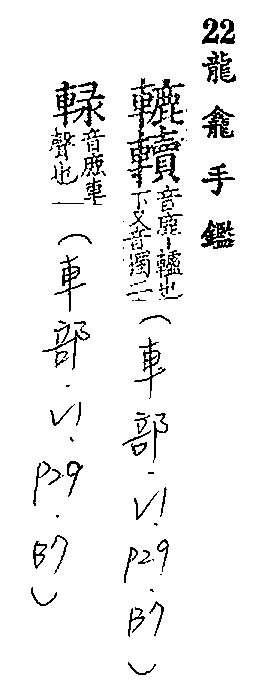 22龍龕手鑑
轆𨏔音鹿丨轤也下又音獨二(車部.V1.P29.B7)
𨌠音鹿車聲也一(車部.V1.P29.B7)